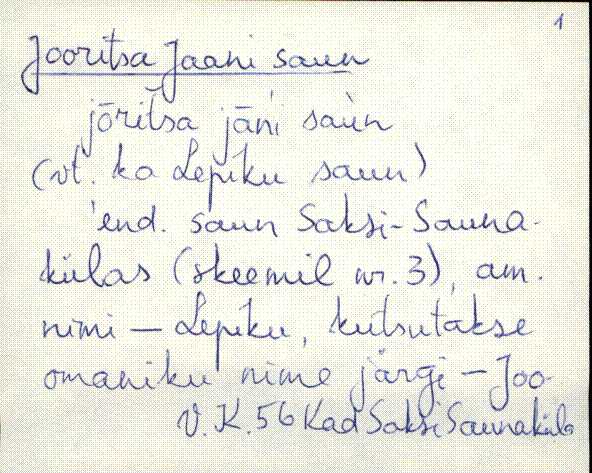 1
Jooritsa Jaani saun
jōri͔tsa jāńi saùn
(vt. ka Lepiku saun)
'end. saun Saksi-Sauna-
külas (skeemil nr. 3), am.
nimi — Lepiku, kutsutakse
omaniku nime järgi — Joo-
V.K. 56 Kad Saksi Saunaküla